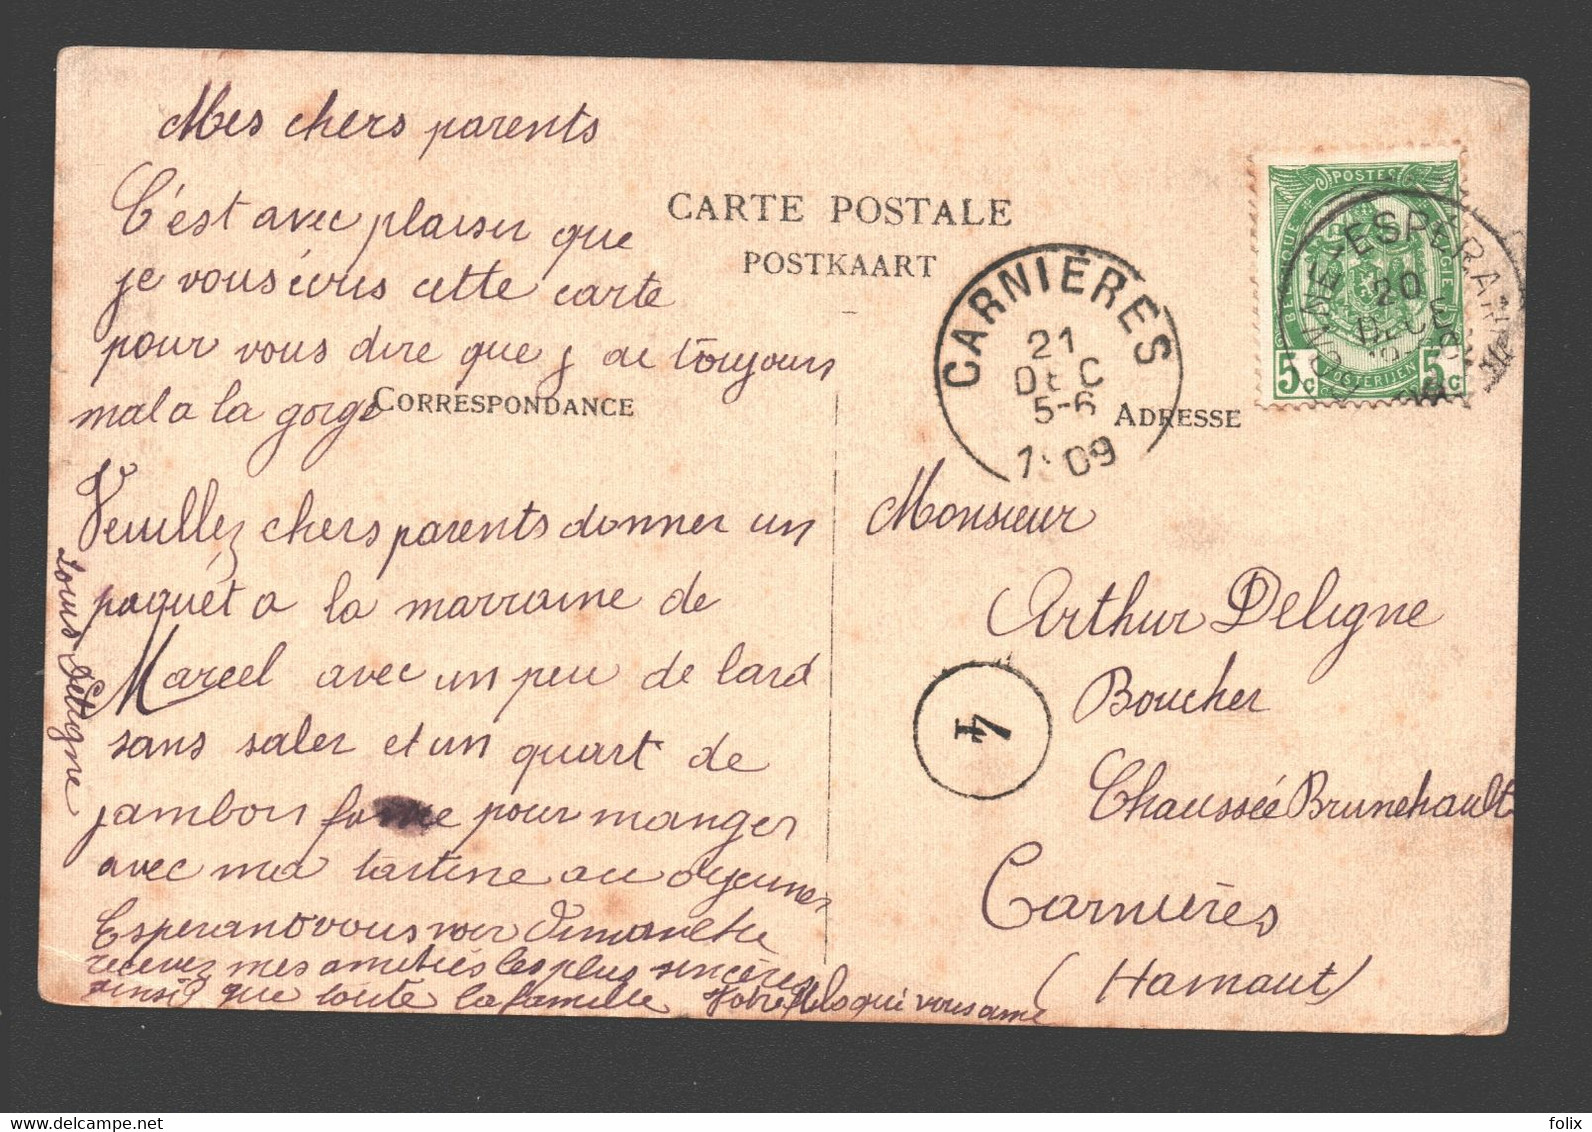 Mes chers parents
C'est avec plaisir que
je vous écris cette carte
pour vous dire que j ai toujours
mal a la gorge
Veuillez chers parents donner un
paquet a la marraine de
Marcel avec un peu de lard
sans saler et un quart de
jambon fume pour manger
avec ma tartine au dejeuner
Esperant vous voir Dimanche
recevez mes amitiés les plus sincères
ainsi que toute la famille Votre fils qui vous aime
Louis Deligne
CARTE POSTALE
POSTKAART
CORRESPONDANCE
ADRESSE
CARNIÈRES
21
DEC
5-6
1909
POSTES
BELGIQUE BELGIE
5c 5c
POSTERIJEN
20
DECE
4
Monsieur
Arthur Deligne
Boucher
Chaussée Brunehault
Carnières
(Hainaut)
folix